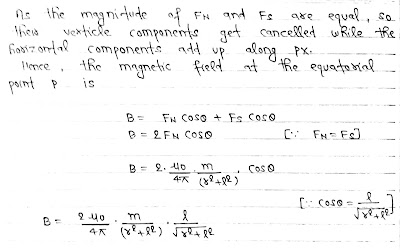 As the magnitude of FN and FS are equal, so
their verticle components get cancelled while the
horizontal components add up along px.
Hence, the magnetic field at the equatorial
point p is
B = FN cosθ + FS cosθ
B = 2FN cosθ [∵ FN = FS]
B = 2. μ0/4π . m/(r²+l²) . cosθ
[∵ cosθ = l/√r²+l²]
B = 2 μ0/4π . m/(r²+l²) . l/√r²+l²